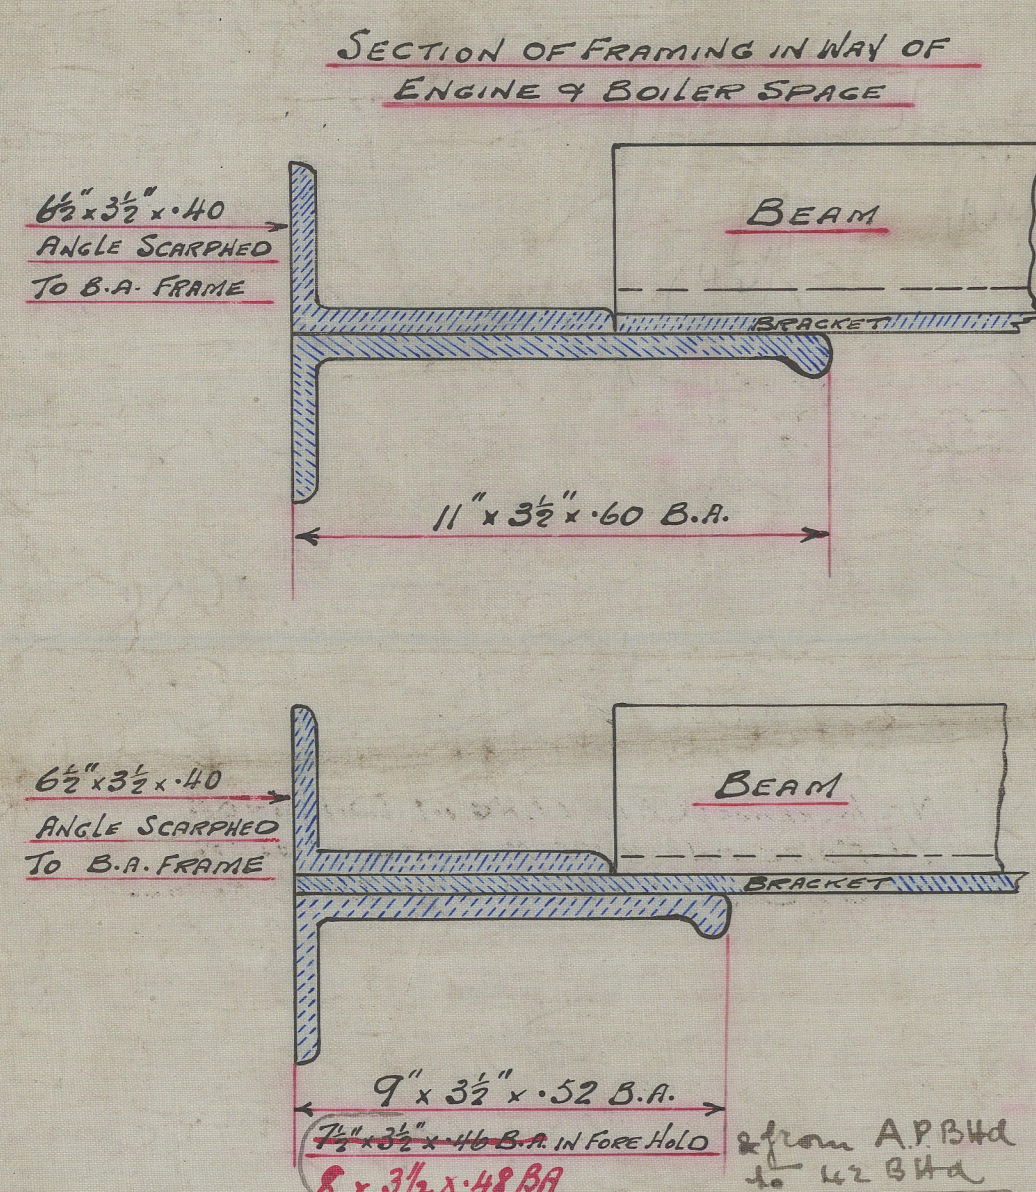 SECTION OF FRAMING IN WAY OF
ENGINE & BOILER SPACE
6½" x 3½" x .40
ANGLE SCARPHED
TO B.A. FRAME
BEAM
BRACKET
11" x 3½" x .60 B.A.
6½" x 3½ x .40
ANGLE SCARPHED
TO B.A. FRAME
BEAM
BRACKET
9" x 3½" x .52 B.A.
7½" x 3½" x .46 B.A. IN FORE HOLD
8 x 3½ x .48 BA
& from A.P. BHd
to 42 BHd